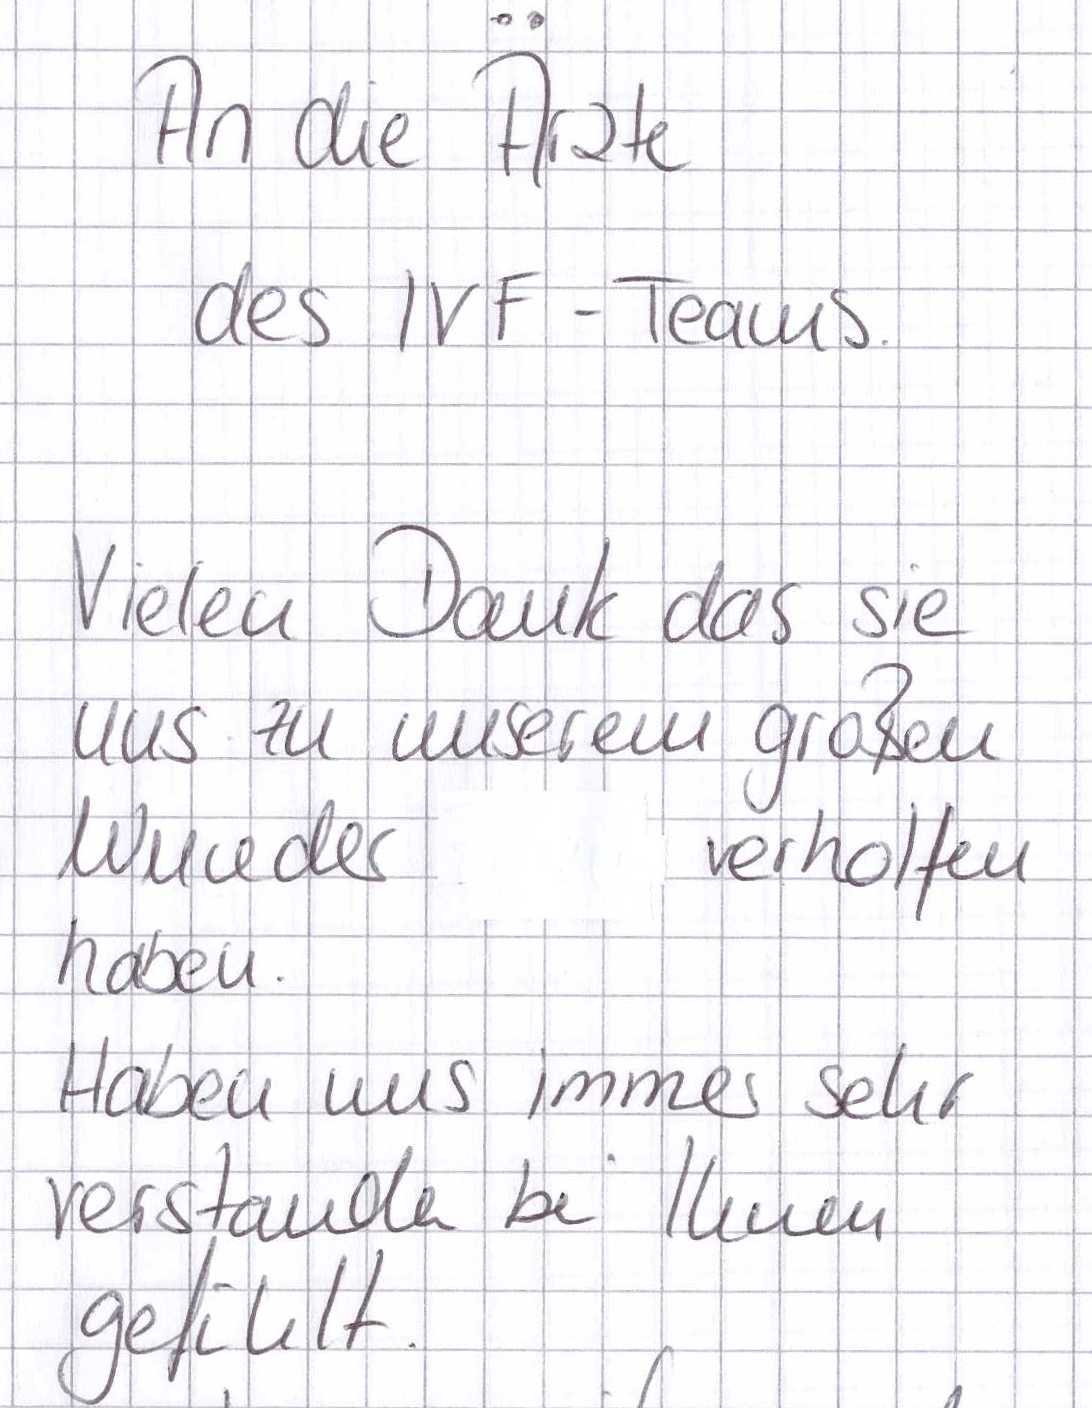 An die Ärzte
des IVF-Teams.
Vielen Dank das sie
uns zu unserem großen
Wunder verholfen
haben.
Haben uns immer sehr
verstanden bei Ihnen
gefühlt.